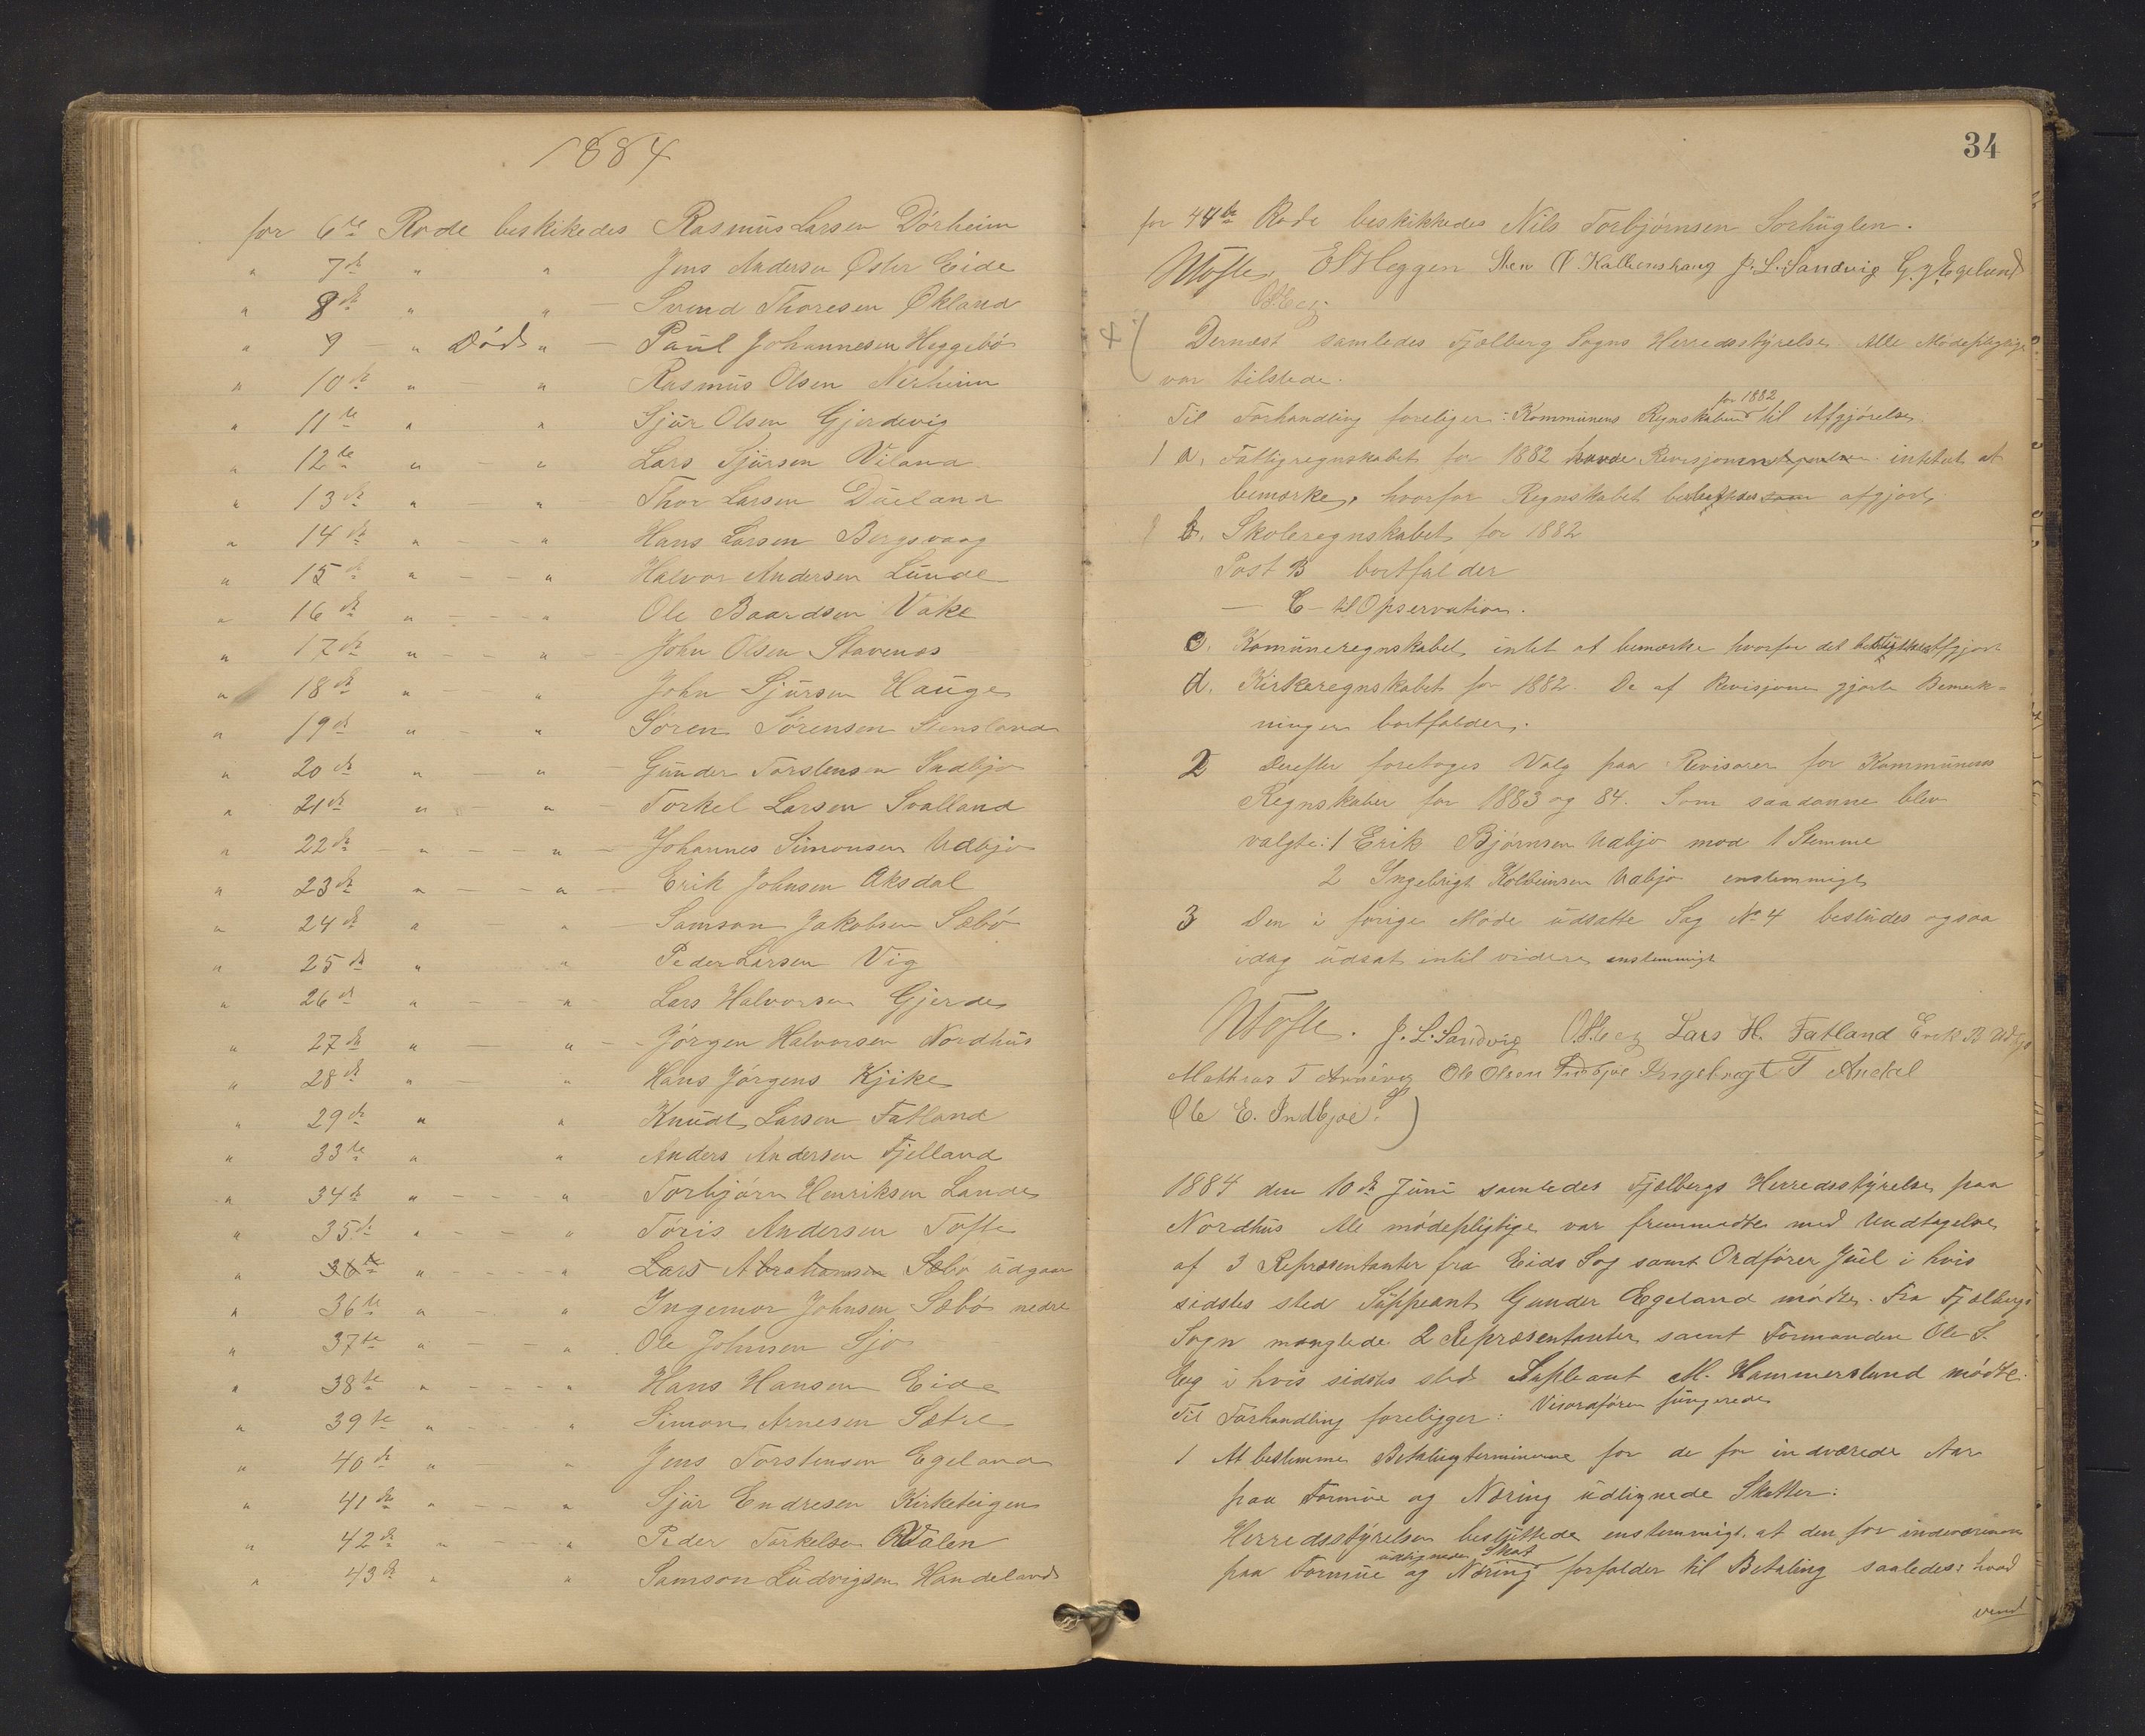 1884
for 6te Rode beskikedes Rasmus Larsen Dörheim
" 7de " " Jens Andersen Öster Eide
" 8de " " Svend Thoresen Ökland
" 9 - " Död " Paul Johannesen Heggebö
" 10de " " Rasmus Olsen Nerheim
" 11te " " Sjur Olsen Gjerdevig
" 12te " " Lars Sjursen
" 13de " " Thor Larsen Dueland
" 14de " " Hans Larsen Bergsvaag
" 15de " " Halvor Andersen Lunde
" 16de " " Ole Baardsen Vake
" 17de " " John Olsen Stavenæs
" 18de " " John Sjursen Hauge
" 19de " " Sören Sörensen Stensland
" 20de " " Gunder Torstensen Indbjo
" 21de " " Torkel Larsen Svalland
" 22de " " Johannes Simonsen Udbjo
" 23de " " Erik Johnsen Aksdal
" 24de " " Samson Jakobsen Sæbö
" 25de " " Peder Larsen Vig
" 26de " " Lars Halvorsen Gjerde
" 27de " " Jörgen Halvorsen Nordhus
" 28de " " Hans Jörgens Kjike
" 29de " " Knudt Larsen Fatland
" 33te " " Anders Andersen Fjelland
" 34de " " Torbjörn Henriksen Lande
" 35te " " Töris Andersen Tofte
" 36te " " Lars Abrahamsen Sæbö udgaar
" 36te " " Ingemor Johnsen Sæbö nedre
" 37te " " Ole Johnsen Sjo
" 38te " " Hans Hansen Eide
" 39te " " Simon Arnesen Sætre
" 40de " " Jens Torstensen Egeland
" 41de " " Sjur Endresen Kirketeigen
" 42de " " Peder Torkelsen Valen
" 43de " " Samson Ludvigsen Handeland
34
for 44de Rode beskikkedes Nils Torbjørnsen Sorhuglen.
NTofte. E Heggen Sten J.L.Sandvig G. J. Egeland
OSEeg
Dernæst samledes Fjælberg Sogns Herredsstyrelse. Alle Mödepligtige
var tilstede.
Til Forhandling foreligger: Kommunens Regnskaber for 1882 til Afgjörelse
1 a. Fattigregnskabet for 1882 havde Revisjonen intet at
bemærke, hvorfor Regnskabet afgjort.
b. Skoleregnskabet for 1882
Post B bortfalder
— C - til Opservation.
c. Komuneregnskabet intet at bemærke hvorfor det Afgjort
d. Kirkeregnskabet for 1882. De af Revisjonen gjorte Bemærk-
ninger bortfalder.
2 Derefter foretoges Valg paa Revisorer for Kommunens
Regnskaber for 1883 og 84. Som saadanne blev
valgte: 1 Erik Bjørnsen Udbjo mod 1 Stemme
2 Ingebrigt Kolbeinsen Udbjo enstemmigt
3 Den i forige Mode udsatte Sag No 4 besludes ogsaa
idag udsat intil videre enstemmigt
NTofte. J. L. Sandvig OSEeg Lars H. Fatland Erik B Udbjo
Mathias T Ole Olsen Ingebregt T
Ole E. Indbjoe. )
1884 den 10de Juni samledes Fjelbergs Herredsstyrelse paa
Nordhus Alle mödepligtige var fremmødte med Undtagelse
af 3 Repræsentanter fra Eids Sog samt Ordförer Juel i hvis
sidstes sted Süppeant Gunder Egeland mödte. Fra Fjælbergs
Sogn manglede 2 Repræsentanter samt Formanden Ole S.
Eeg i hvis sidstes sted Supleant M. Hammersland mödte.
Til Forhandling foreligger: Viseordförer fungerede
1 At bestemme Betalingsterminerne for de for indværede Aar
paa Formue og Næring udlignede Skatter:
Herredsstyrelsen besluttede enstemmigt at den for indeværende
paa Formue og Næring udlignede Skat forfalder til Betaling saaledes: hvad
vend